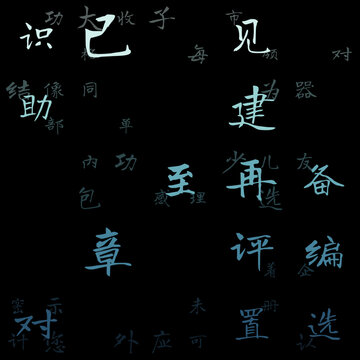 功 大 收 子 市
识 已 见
每 对
结 像 同 为 器
助 建
部 单
内 功 少 儿 友
至 再 备
包 感 理 选
章 评 编
着 企
密 示 未 册
对 置 选
计 您 外 应 可 认